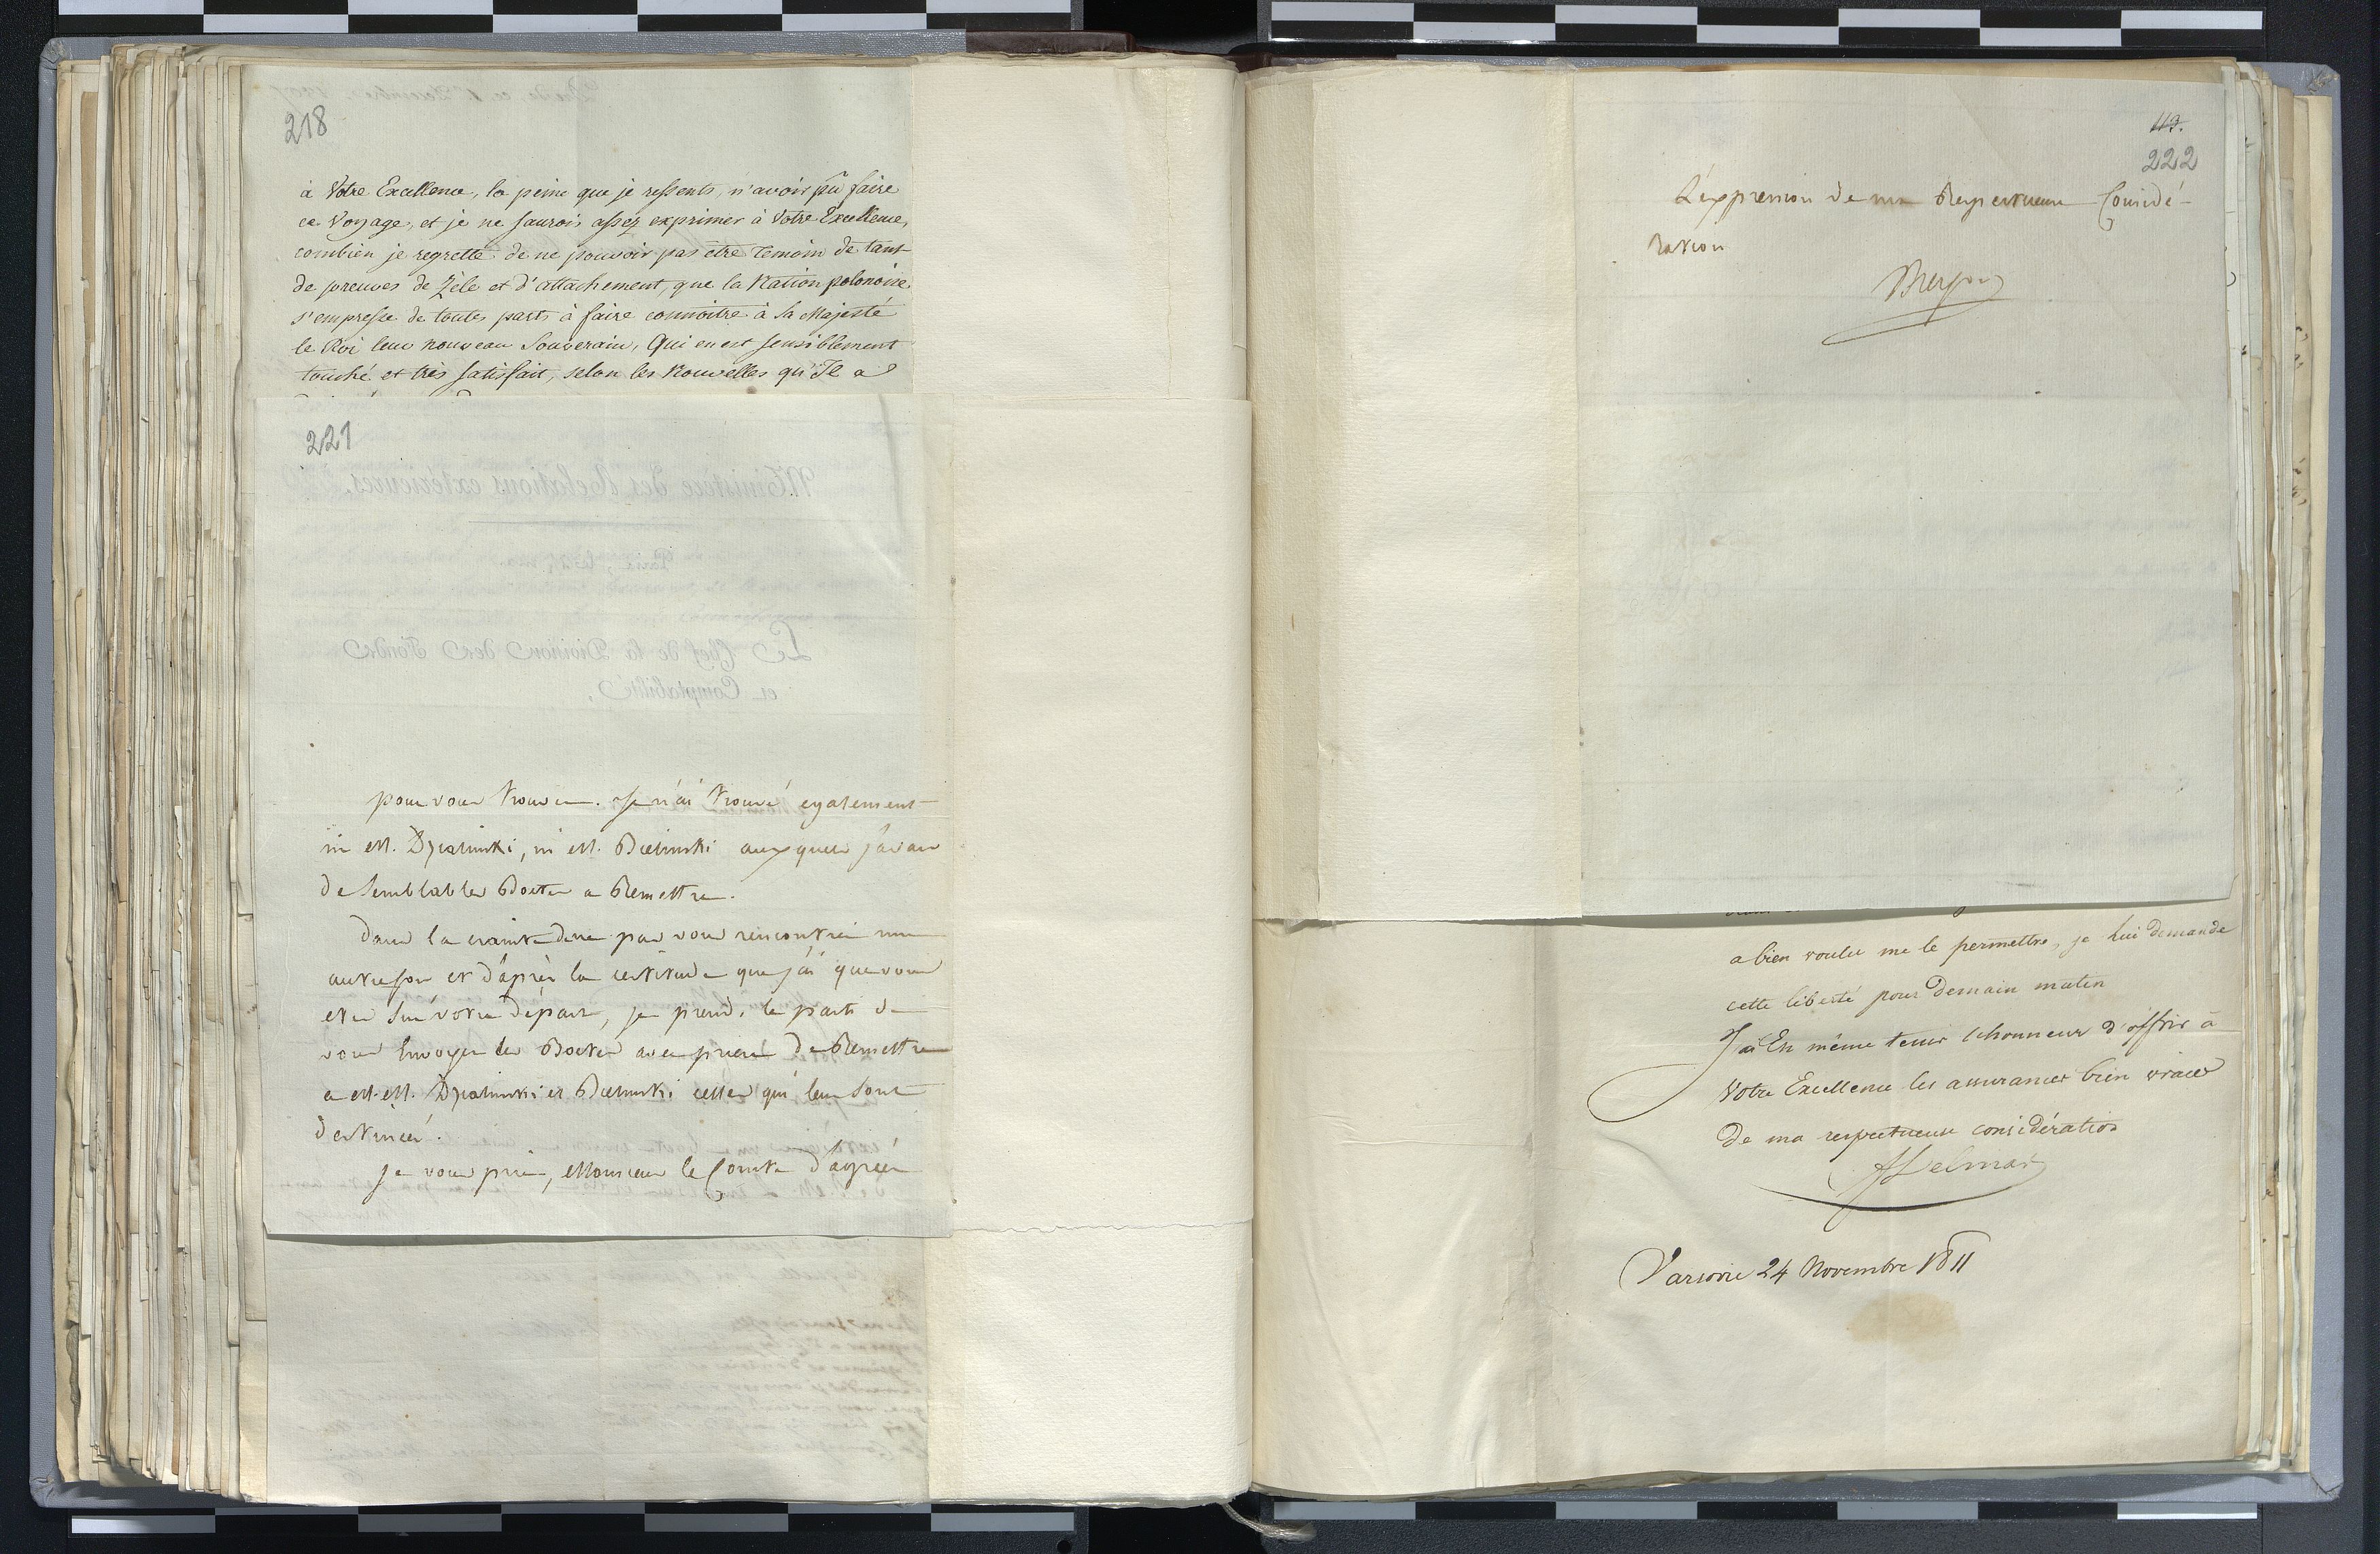 218
à Votre Excellence, la peine que je ressents, n'avoir pû faire
ce Voyage, et je ne saurois assez exprimer à Votre Excellence,
combien je regrette de ne pouvoir pas être temoin de tant
de preuves de Zèle et d'attachement, que la Nation polonoise,
s'empresse de toutes parts à faire connoitre à Sa Majesté
le Roi leur nouveau Souverain, Qui en est sensiblement
touché et très satisfait, selon les Nouvelles qu'Il a
221
Ministère des Relations extérieures.
Le Chef de la Division des Fonds
et Comptabilité.
pour vous trouver. Je n'ai trouvé egalement
ni M. Dzialinski, ni M. Bielinski auxquels j'avais
de semblables Boetes a Remettre.
Dans la crainte de ne pas vous rencontrer une
autre fois et d'après la certitude que j'ai que vous
etes sur votre départ, je prends le parti de
vous Envoyer les Boetes avec priere de Remettre
a M.M. Dzialinski et Bielinski celles qui leur sont
destinées.
Je vous prie, Monsieur le Comte d'agréer
113.
222
L'expression de ma Respectueuse Considé-
ration
a bien voulu me le permettre, je lui demande
cette liberté pour demain matin
J'ai En même tems l'honneur d'offrir à
Votre Excellence les assurances bien vraies
de ma respectueuse considération
Varsovie 24 Novembre 1811